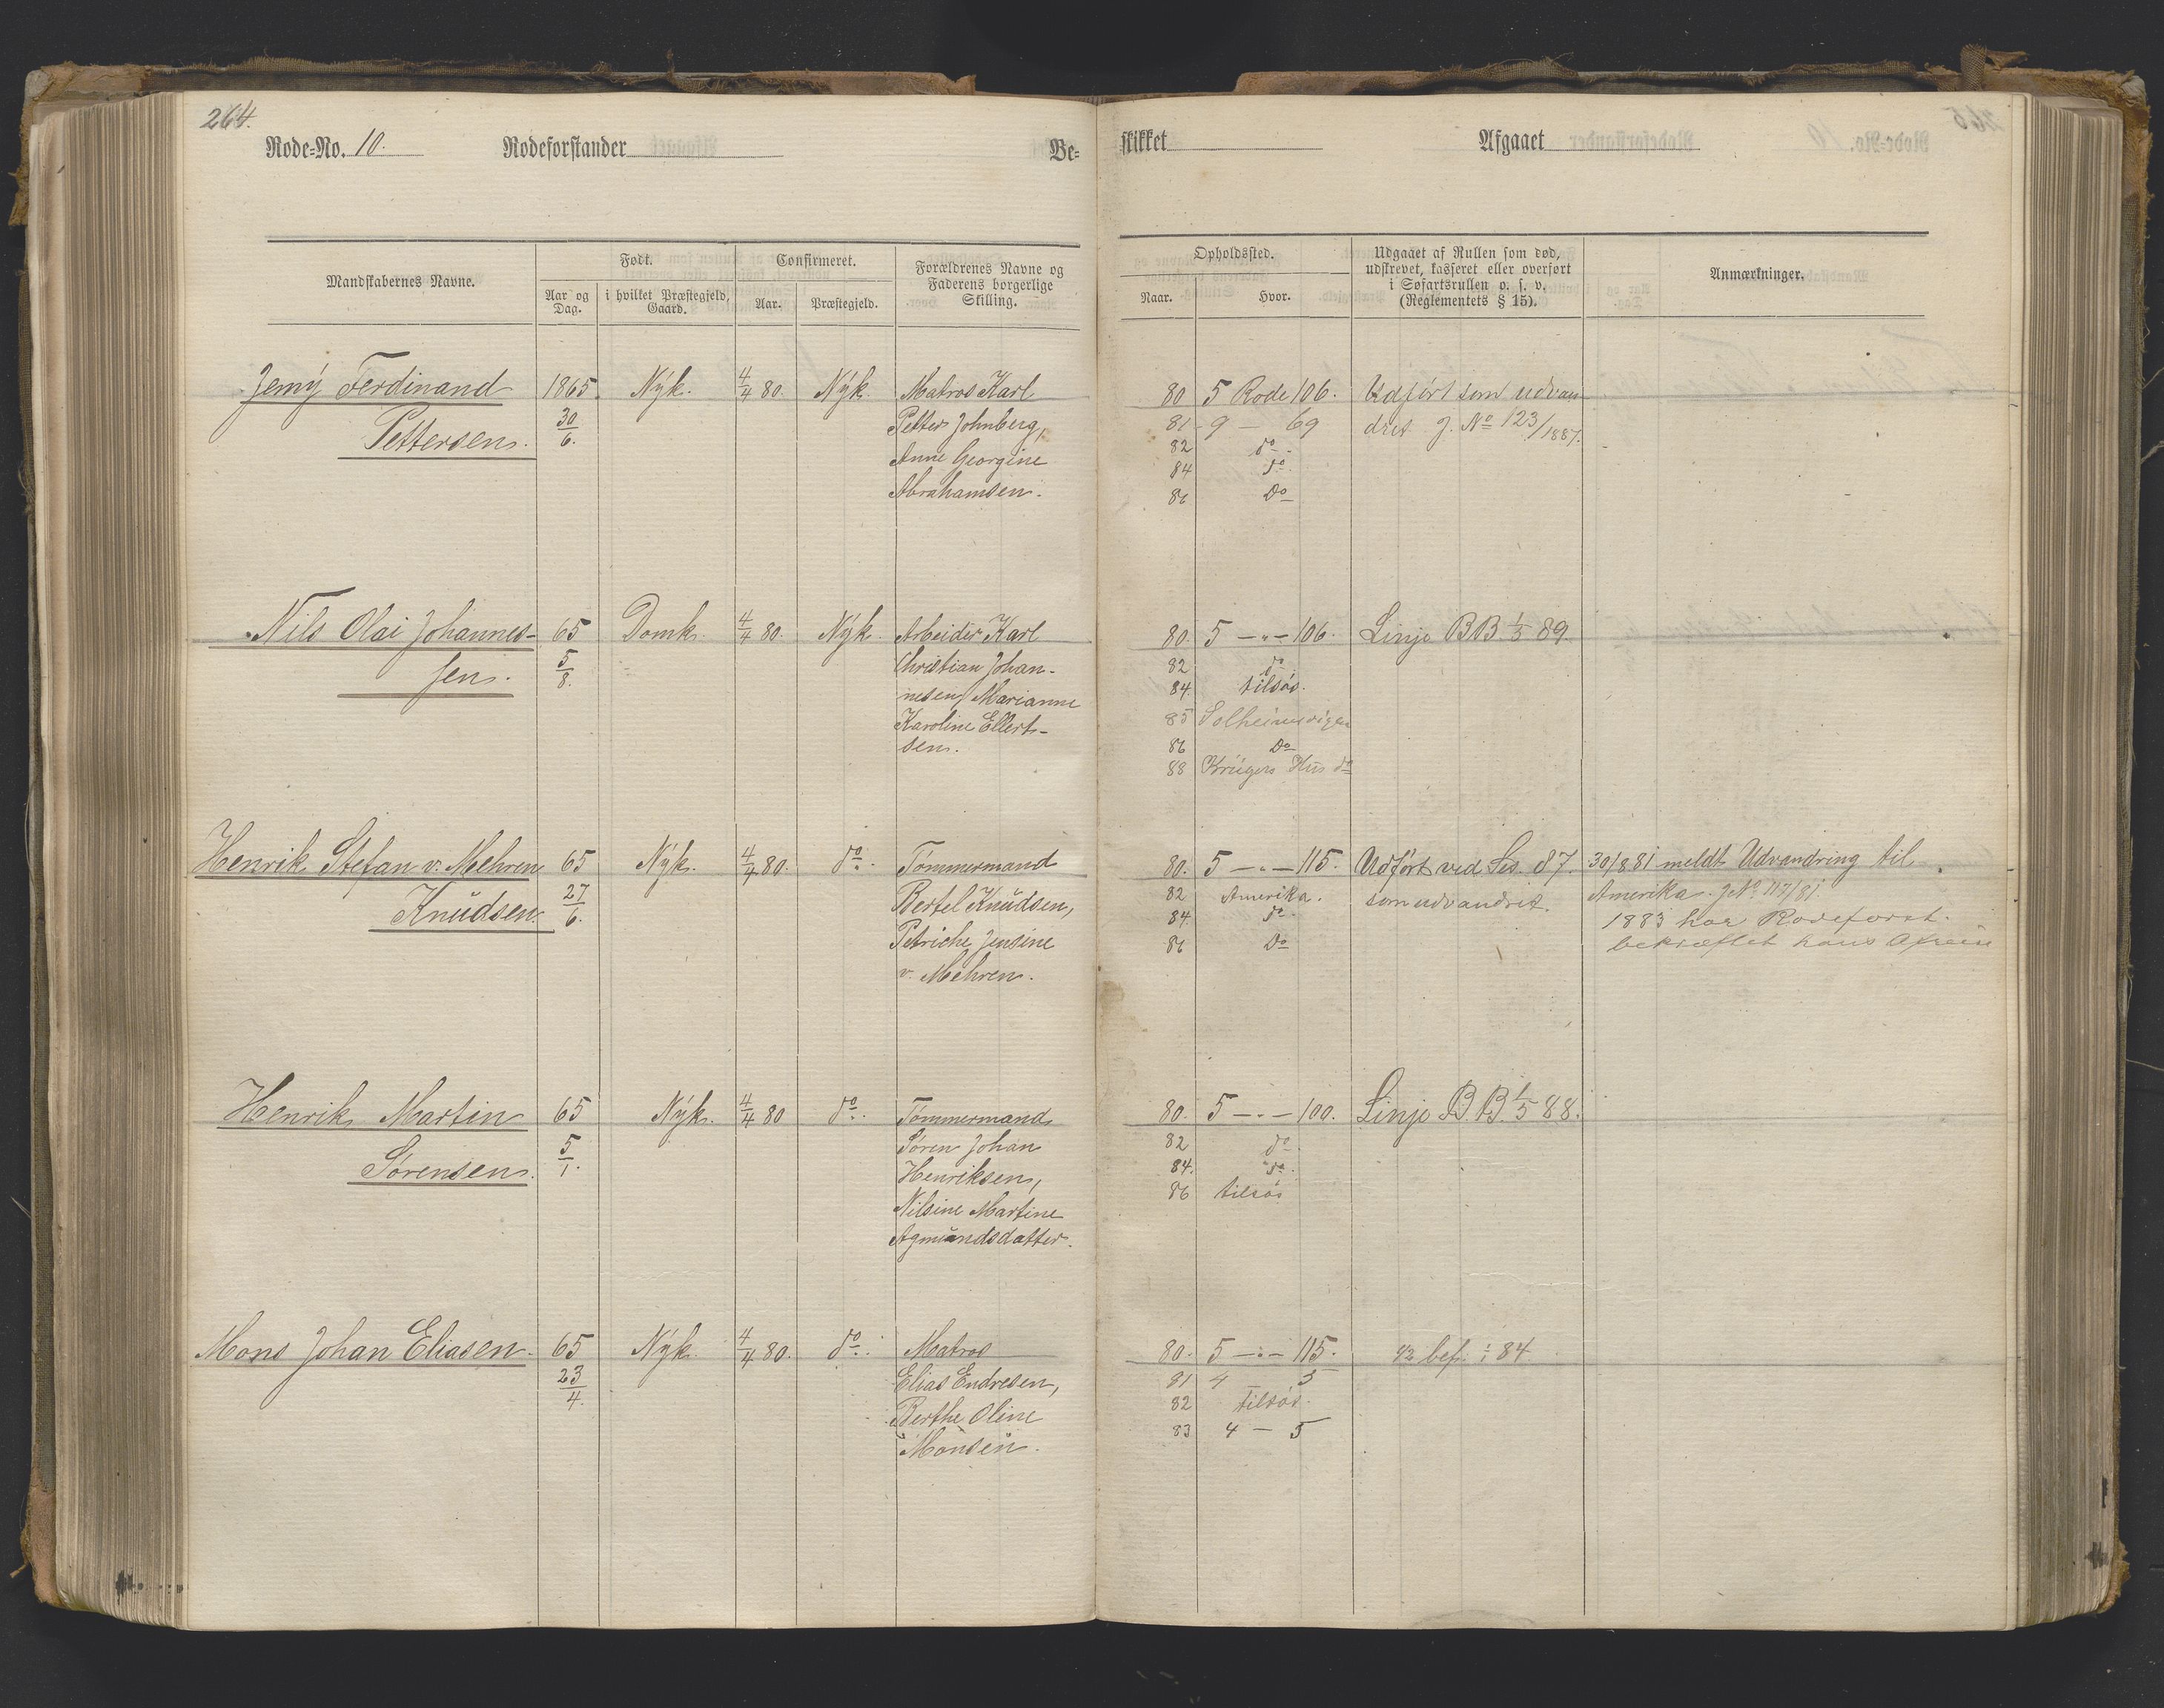 264.
Rode-No. 10.
Rodeforstander
Be-
skikket
Afgaaet
Mandskabernes Navne.
Født.
Aar og Dag.
i hvilket Præstegjeld, Gaard.
Confirmeret.
Aar.
Præstegjeld.
Forældrenes Navne og
Faderens borgerlige
Stilling.
Opholdssted.
Naar.
Hvor.
Udgaaet af Rullen som død,
udskrevet, kasseret eller overført
i Søfartsrullen o. s. v.
(Reglementets § 15).
Anmærkninger.
Jemy Ferdinand
Pettersen.
1865.
30/6.
Nyk.
4/4 80.
Nyk.
Matros Karl
Petter Johnberg,
Anne Georgine
Abrahamsen.
80 5 Rode 106.
81 9 — 69
82 do.
84 do.
86 Do
Udført som udvan-
dret J. No 123/1887.
Nils Olai Johannes-
sen.
65
5/8.
Domk.
4/4 80.
Nyk.
Arbeider Karl
Christian Johan-
nesen, Marianne
Karoline Ellert-
sen.
80. 5 — " — 106.
82 do
84. tilsøs.
85 Solheimsvigen
86 Do
88 Krügers Hus do
Linje B.B. 1/5 89.
Henrik Stefan v. Mehren
Knudsen.
65
27/6.
Nyk.
4/4 80.
do.
Tømmermand
Bertel Knudsen,
Petriche Jensine
v. Mehren.
80. 5 — " — 115.
82 Amerika.
84. do.
86 Do
Udført ved Ses. 87.
som udvandret.
30/8 81 meldt Udvandring til
Amerika. J No 117/81
1883 har Rodeforst.
bekræftet hans Afreise
Henrik Martin
Sørensen.
65
5/1.
Nyk.
4/4 80
do.
Tømmermand
Søren Johan
Henriksen,
Nilsine Martine
Agmundsdatter.
80. 5 — " — 100.
82 do.
84. do.
86 tilsøs
Linje B.B. 1/5 88.
Mons Johan Eliasen.
65
23/4.
Nyk.
4/4 80.
do.
Matros
Elias Endresen,
Berthe Oline
Monsen.
80. 5 — " — 115.
81 4 — 5
82 tilsøs.
83 4 — 5
84.